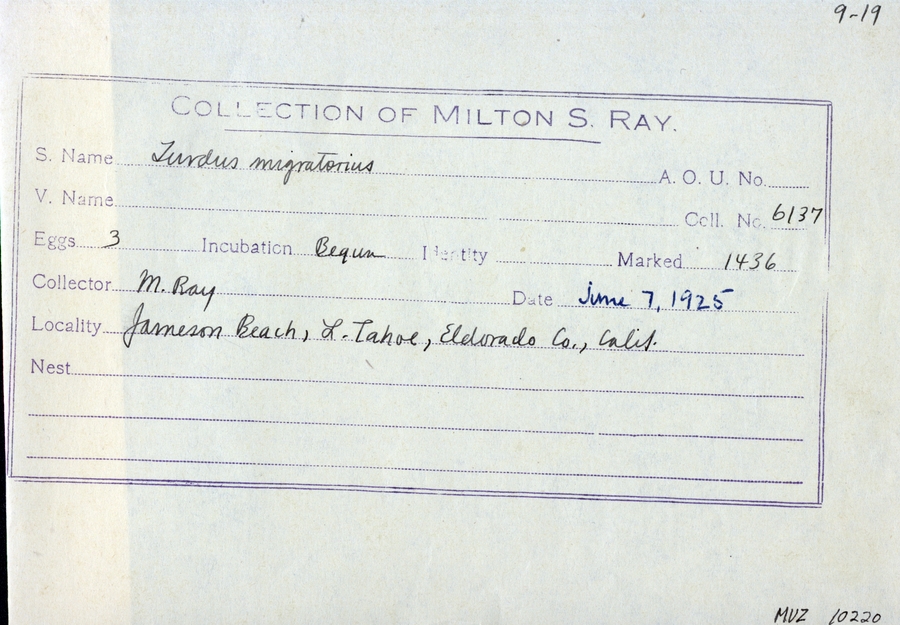 9-19
COLLECTION OF MILTON S. RAY.
S. Name Turdus migratorius A. O. U. No.
V. Name Coll. No. 6137
Eggs 3 Incubation Begun Identity Marked 1436
Collector M. Ray Date June 7, 1925
Locality Jameson Beach, L. Tahoe, Eldorado Co., Calif.
Nest
MVZ 10220